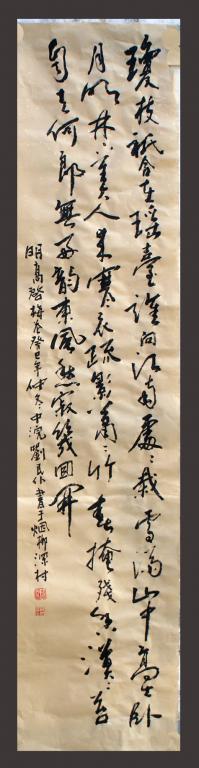 瓊枝祇合在瑶臺誰向江南處々栽雪满山中高士卧
月明林下美人来寒衣疏影蕭々竹春掩殘香漠々苔
自去何郎無好韵東風愁寂幾回開
明高啓梅花癸巳年仲冬中浣劉民仆書于烟柳深村